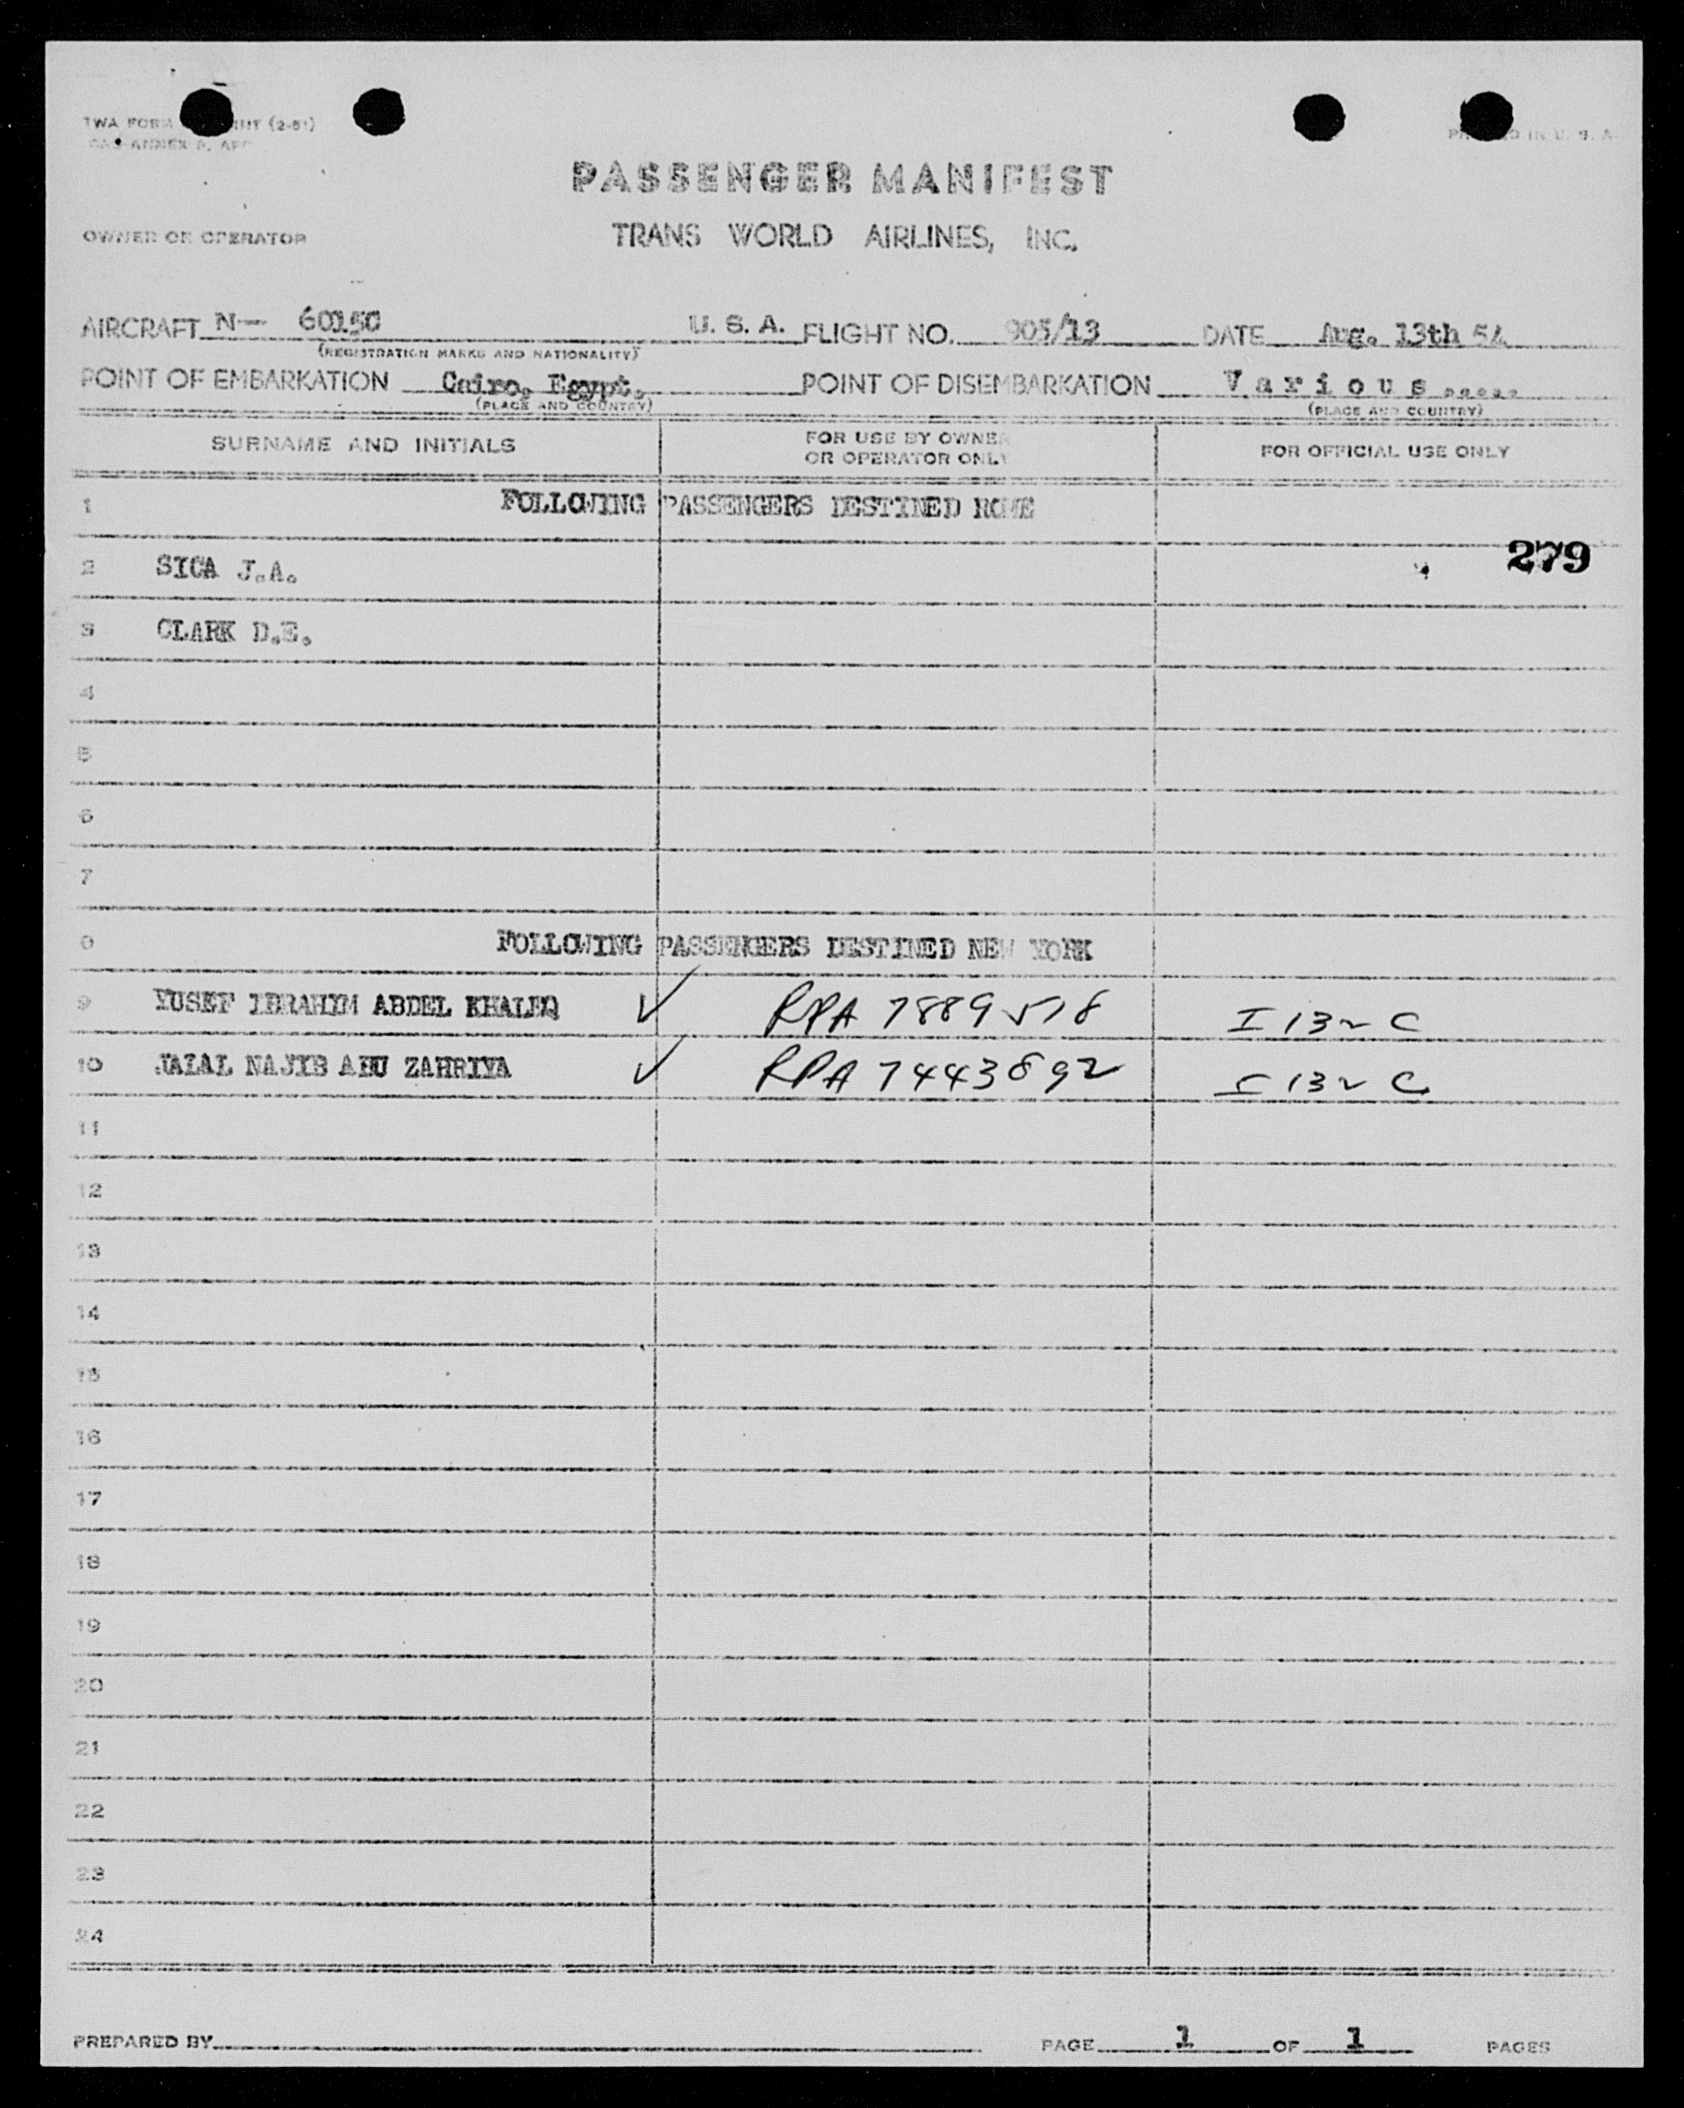 TWA FORM (2-51)
PRINTED IN U. S. A.
PASSENGER MANIFEST
OWNER OR OPERATOR TRANS WORLD AIRLINES, INC.
AIRCRAFT N— 6015C U. S. A. FLIGHT NO. 905/13 DATE Aug. 13th 54
(REGISTRATION MARKS AND NATIONALITY)
POINT OF EMBARKATION Cairo, Egypt. POINT OF DISEMBARKATION Various.....
(PLACE AND COUNTRY) (PLACE AND COUNTRY)
SURNAME AND INITIALS FOR USE BY OWNER OR OPERATOR ONLY FOR OFFICIAL USE ONLY
1 FOLLOWING PASSENGERS DESTINED ROME
279
2 SICA J.A.
3 CLARK D.E.
4
5
6
7
8 FOLLOWING PASSENGERS DESTINED NEW YORK
9 YUSEF IBRAHYM ABDEL KHALEQ ✓ RPA 7889518 I 132 C
10 JALAL NAJIB ABU ZAHRIYA ✓ RPA 7443892 I 132 C
11
12
13
14
15
16
17
18
19
20
21
22
23
24
PREPARED BY PAGE 1 OF 1 PAGES